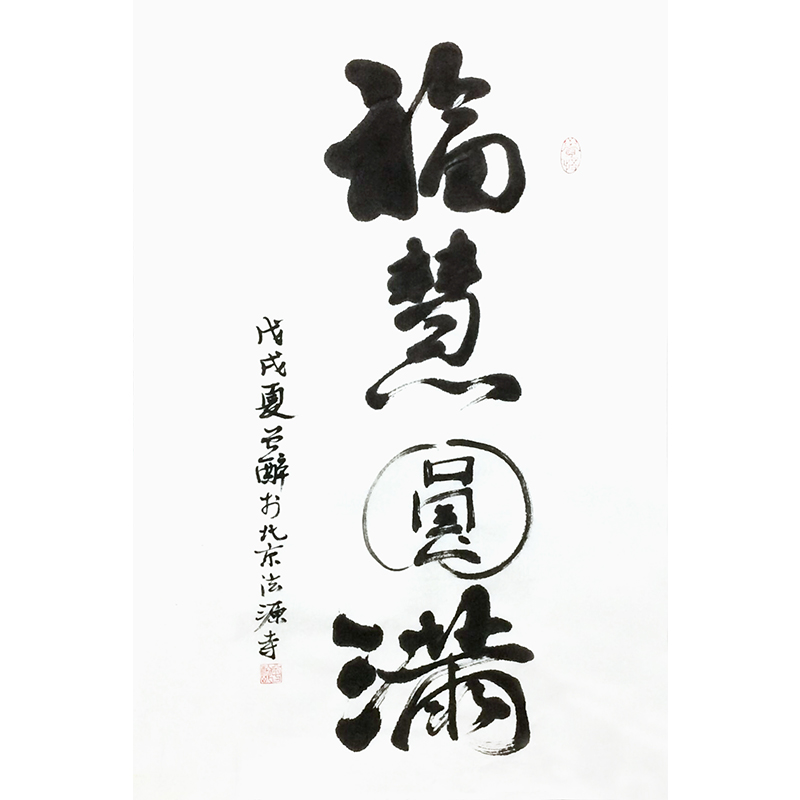 福慧圓滿
戊戌夏醉於北京法源寺